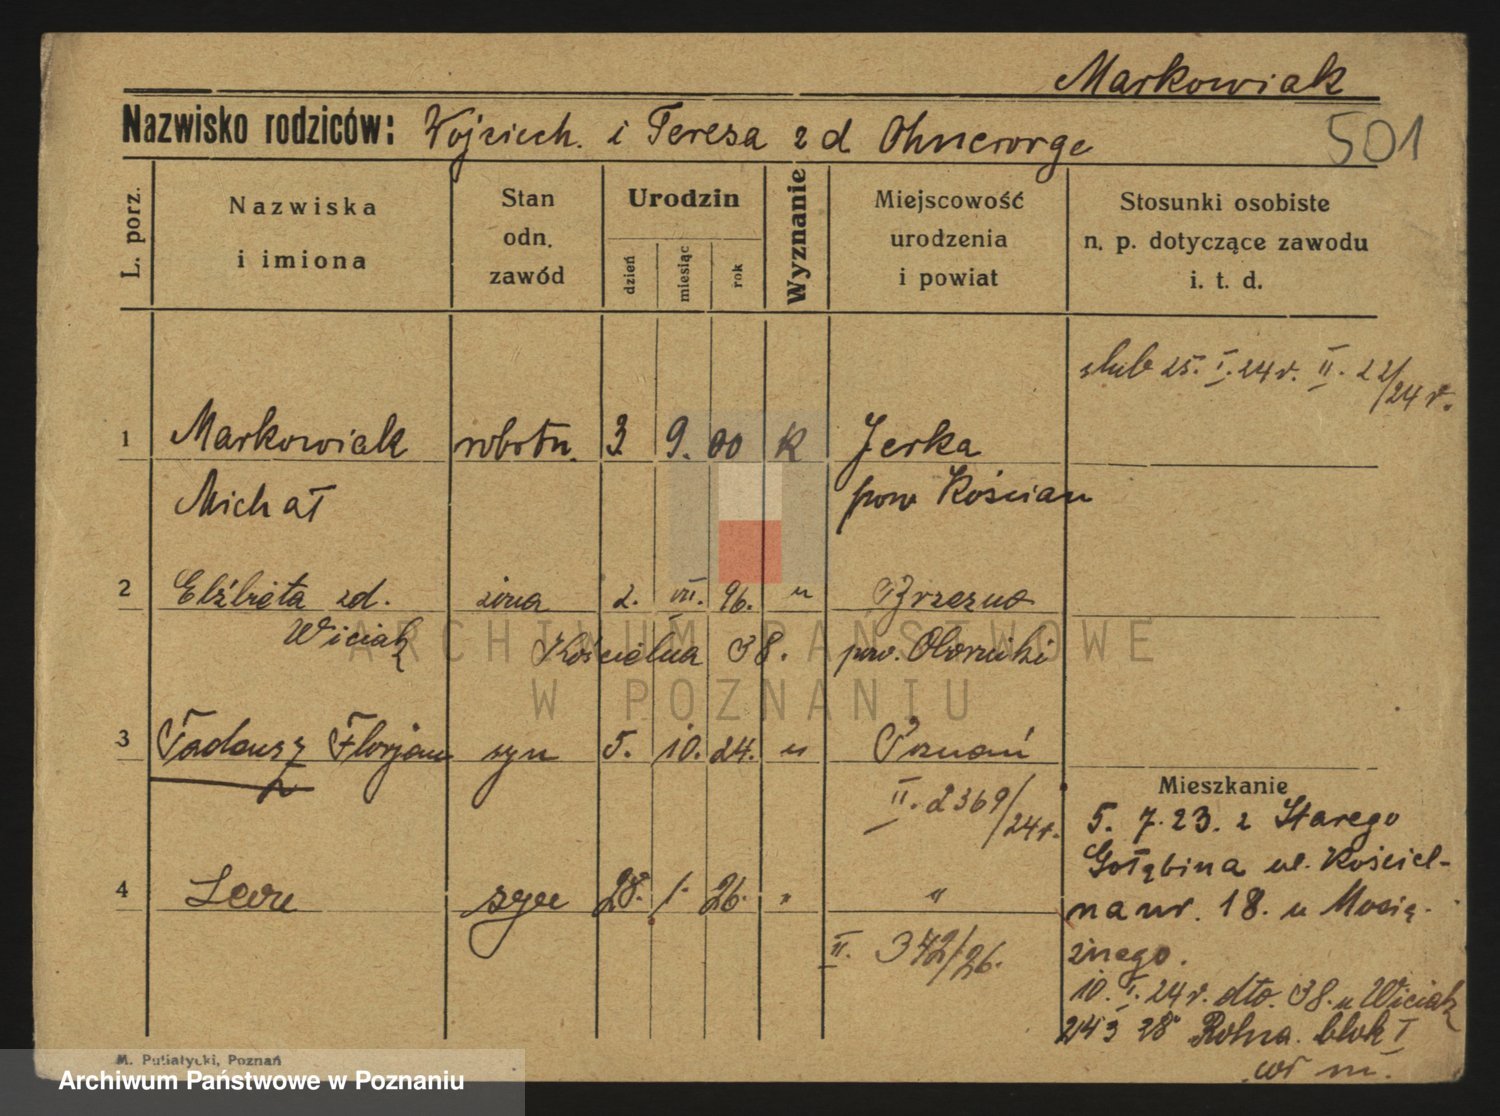 Markowiak
Nazwisko rodziców: Wojciech. i Teresa zd
501
L. porz.
Nazwiska
i imiona
Stan
odn.
zawód
Urodzin
dzień
miesiąc
rok
Wyznanie
Miejscowość
urodzenia
i powiat
Stosunki osobiste
n. p. dotyczące zawodu
i. t. d.
ślub 25. I. 24 r. II. 22/24 r.
1 Markowiak robotn. 3. 9. 00 K Jerka
Michał pow Kościan
2 Elżbieta zd. żona 2. VII. 96. " Brzezno
Wiciak Kościelna 38. pow. Oborniki
3 Tadeusz Florjan syn 5. 10. 24. " Poznań
II. 2369/24 r.
4 Leon syn 28. 1. 26. " "
II. 342/26.
Mieszkanie
5. 7. 23. z Starego
Gołębina ul. Kościel-
na nr. 18. u Mosią-
żnego.
10. I. 24 r. dto. 38. u Wiciak
24 3 28 Rolna. blok I
M. Putiatycki, Poznań
ARCHIWUM PAŃSTWOWE
W POZNANIU
Archiwum Państwowe w Poznaniu